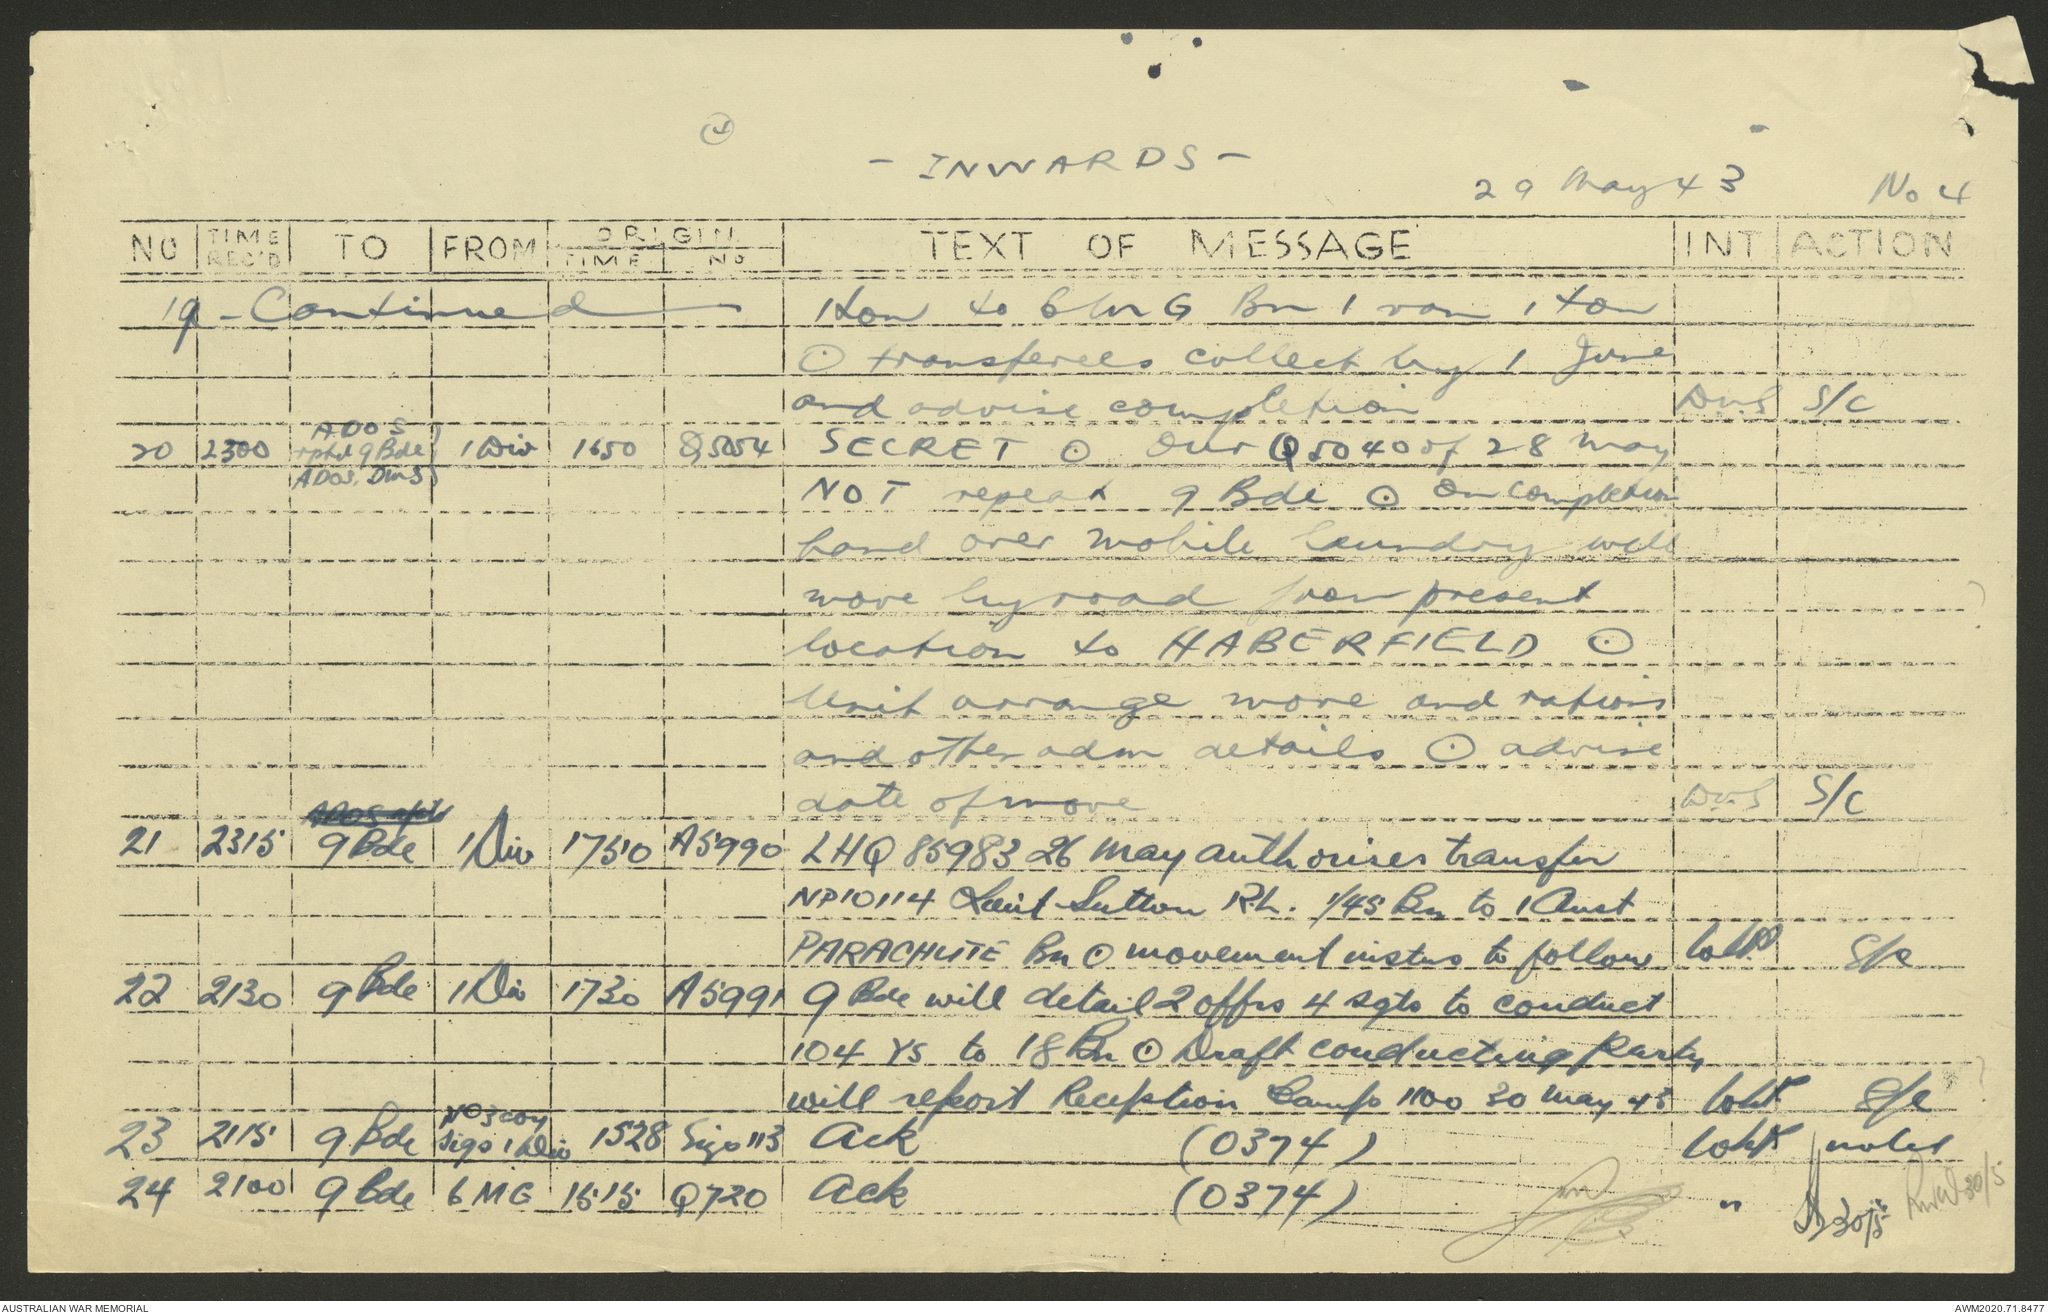 - INWARDS -
29 May 43 No 4
NO TIME REC'D TO FROM ORIGIN TIME NO TEXT OF MESSAGE INT ACTION
19 - Continued 1 ton to 6 MG Bn 1 van 1 ton
⊙ transferees collect by 1 June
and advise completion S/C
20 2300 ADOS rptd 9 Bde ADOS, DMS 1 Div 1650 Q5054 SECRET ⊙ Our Q5040 of 28 May
NOT repeat 9 Bde ⊙ On completion
hand over mobile laundry will
move by road from present
location to HABERFIELD ⊙
Unit arrange move and rations
and other adm details ⊙ advise
date of move S/C
21 2315 9 Bde 1 Div 1750 A5990 LHQ 85983 26 May authorises transfer
NP10114 Lieut Sutton R.L. 1/45 Bn to 1 Aust
PARACHUTE Bn ⊙ movement instns to follow S/C
22 2130 9 Bde 1 Div 1730 A5991 9 Bde will detail 2 offrs 4 sgts to conduct
104 YS to 18 Bn ⊙ Draft conducting Party
will report Reception Camp 1100 30 May 43 S/C
23 2115 9 Bde No 3 coy Sigs 1 Div 1528 Sigs 113 Ack (0374) noted
24 2100 9 Bde 6 MG 1515 Q720 Ack (0374) "
30/5 30/5
AUSTRALIAN WAR MEMORIAL AWM2020.71.8477